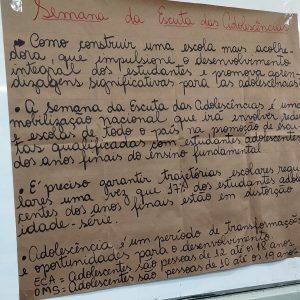 Semana da Escuta das Adolescências
➡ Como construir uma escola mais acolhe-
dora, que impulsione o desenvolvimento
integral dos estudantes e promova apren-
dizagens significativas para las adolescências
• A semana da Escuta das Adolescências é uma
mobilização nacional que irá envolver redes
e escolas de todo o país na promoção de escu-
tas qualificadas com estudantes adolescentes
dos anos finais do ensino fundamental
• É preciso garantir trajetórias escolares regu-
lares uma vez que 17% dos estudantes adoles-
centes dos anos finais estão em distorção
idade-série.
• Adolescência é um período de transformações
e oportunidades para o desenvolvimento
ECA = Adolescentes são pessoas de 12 até os 18 anos
OMS = Adolescentes são pessoas de 10 até os 19 anos